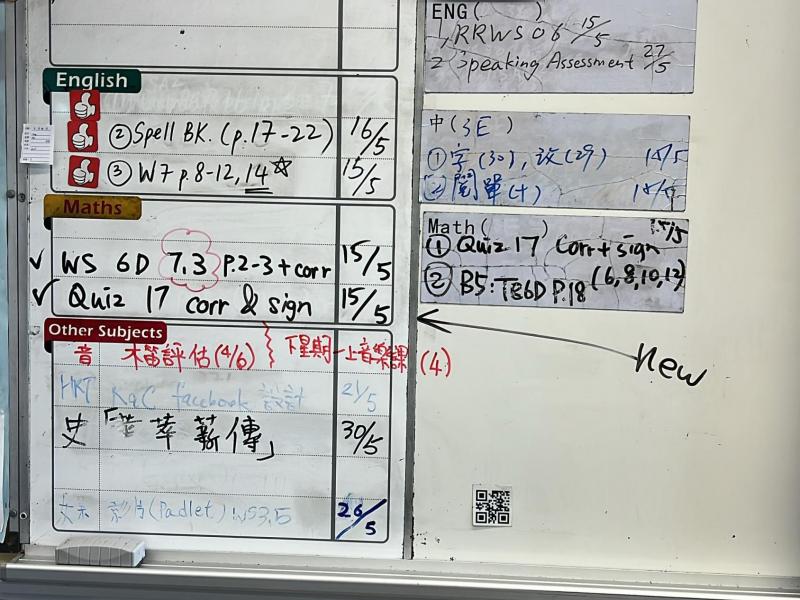 English
② Spell BK. (p.17-22) 16/5
③ W7 p.8-12, 14 ☆ 15/5
Maths
✓ WS 6D 7.3 P.2-3 + corr 15/5
✓ Quiz 17 corr & sign 15/5
Other Subjects
音 木笛評估(4/6) 下星期一上音樂課 (4)
facebook 設計 21/5
史 「薈萃薪傳」 30/5
影片(Padlet) 26/5
ENG( )
1, RRWS 06 15/5
2 Speaking Assessment 27/5
中(3E)
① 字(30), 改(29) 15/5
② 閱單(十) 15/5
Math( ) 15/5
① Quiz 17 corr + sign
② B5: TB6D P.18 (6,8,10,12)
New